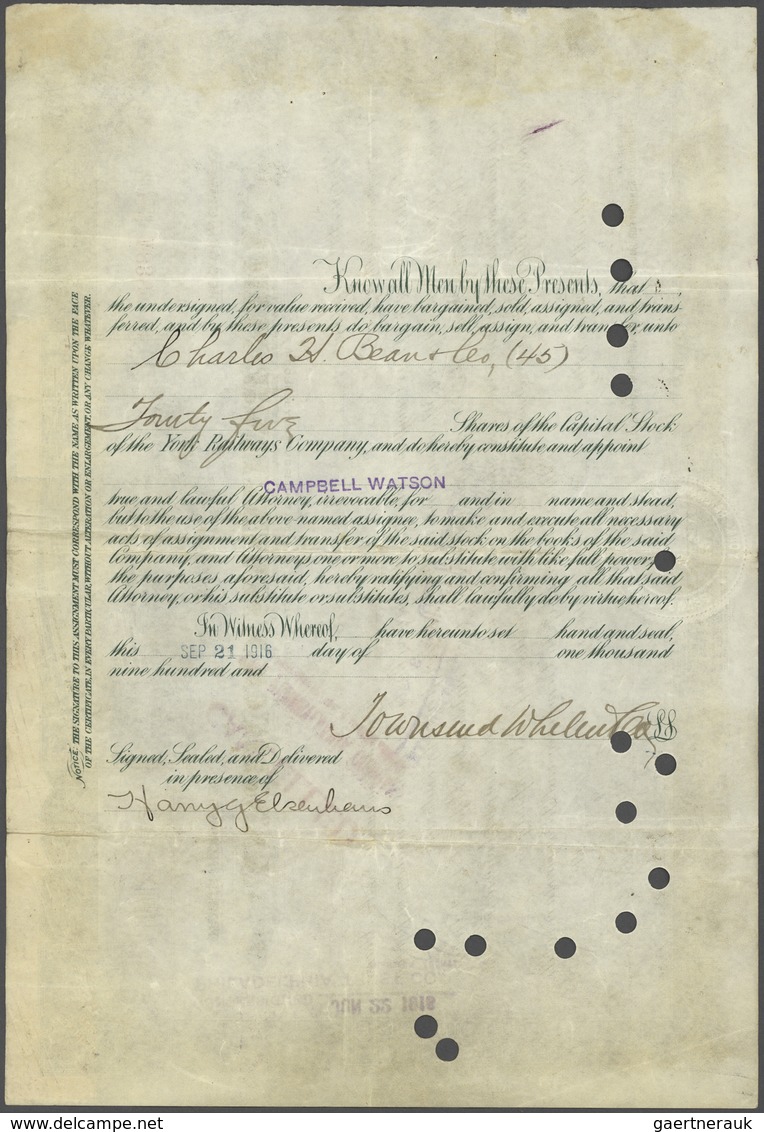 Know all Men by these Presents, that
the undersigned, for value received, have bargained, sold, assigned, and trans-
ferred, and by these presents do bargain, sell, assign, and transfer, unto
Charles H. Bean & Co, (45)
Fourty five Shares of the Capital Stock
of the York Railways Company, and do hereby constitute and appoint
CAMPBELL WATSON
true and lawful Attorney, irrevocable, for and in name and stead,
but to the use of the above named assignee, to make and execute all necessary
acts of assignment and transfer of the said stock on the books of the said
Company, and Attorneys one or more to substitute with like full power,
the purposes aforesaid, hereby ratifying and confirming all that said
Attorney, or his substitute or substitutes, shall lawfully do by virtue hereof.
In Witness Whereof, have hereunto set hand and seal,
this SEP 21 1916 day of one thousand
nine hundred and
Townsend Whelen & Co LS
Signed, Sealed, and Delivered
in presence of
Harry G Elsenhans
NOTICE. THE SIGNATURE TO THIS ASSIGNMENT MUST CORRESPOND WITH THE NAME AS WRITTEN UPON THE FACE
OF THE CERTIFICATE, IN EVERY PARTICULAR, WITHOUT ALTERATION OR ENLARGEMENT, OR ANY CHANGE WHATEVER.
PHILADELPHIA
JUN 22 1916
delcampe.net
gaertnerauk